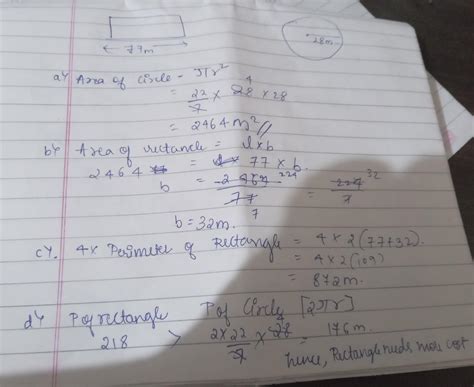 77m
28m
a) Area of Circle = πr²
= 22/7 × 28 4 × 28
= 2464 m²//
b) Area of rectancle = l×b
2464 = 77 × b
b = 2464 224 / 77 7 = 224 32 / 7
b = 32m.
c) 4× Perimeter of Rectangle = 4×2(77+32).
= 4×2(109)
= 872m.
d) P of rectangle P of Circle [2πr]
218 > 2×22/7 × 28 4 = 176m.
hence, Rectangle needs more cost